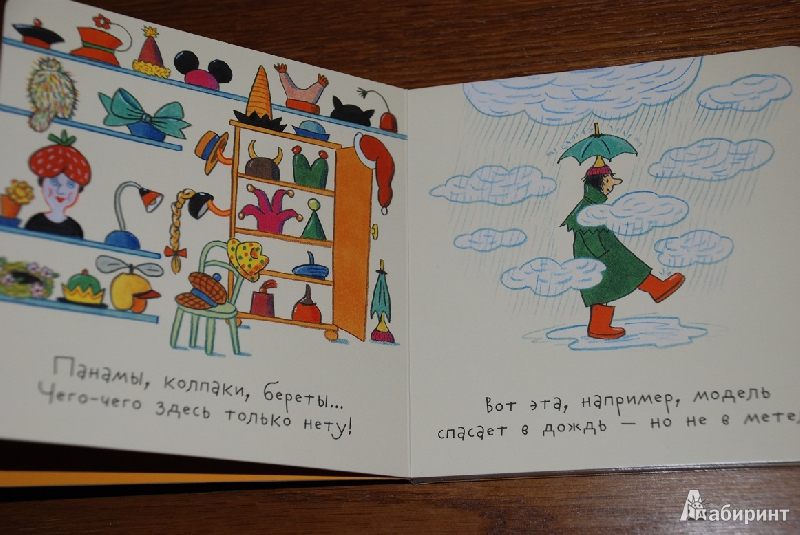 Панамы, колпаки, береты...
Чего-чего здесь только нету!
Вот эта, например, модель
спасает в дождь — но не в
Лабиринт